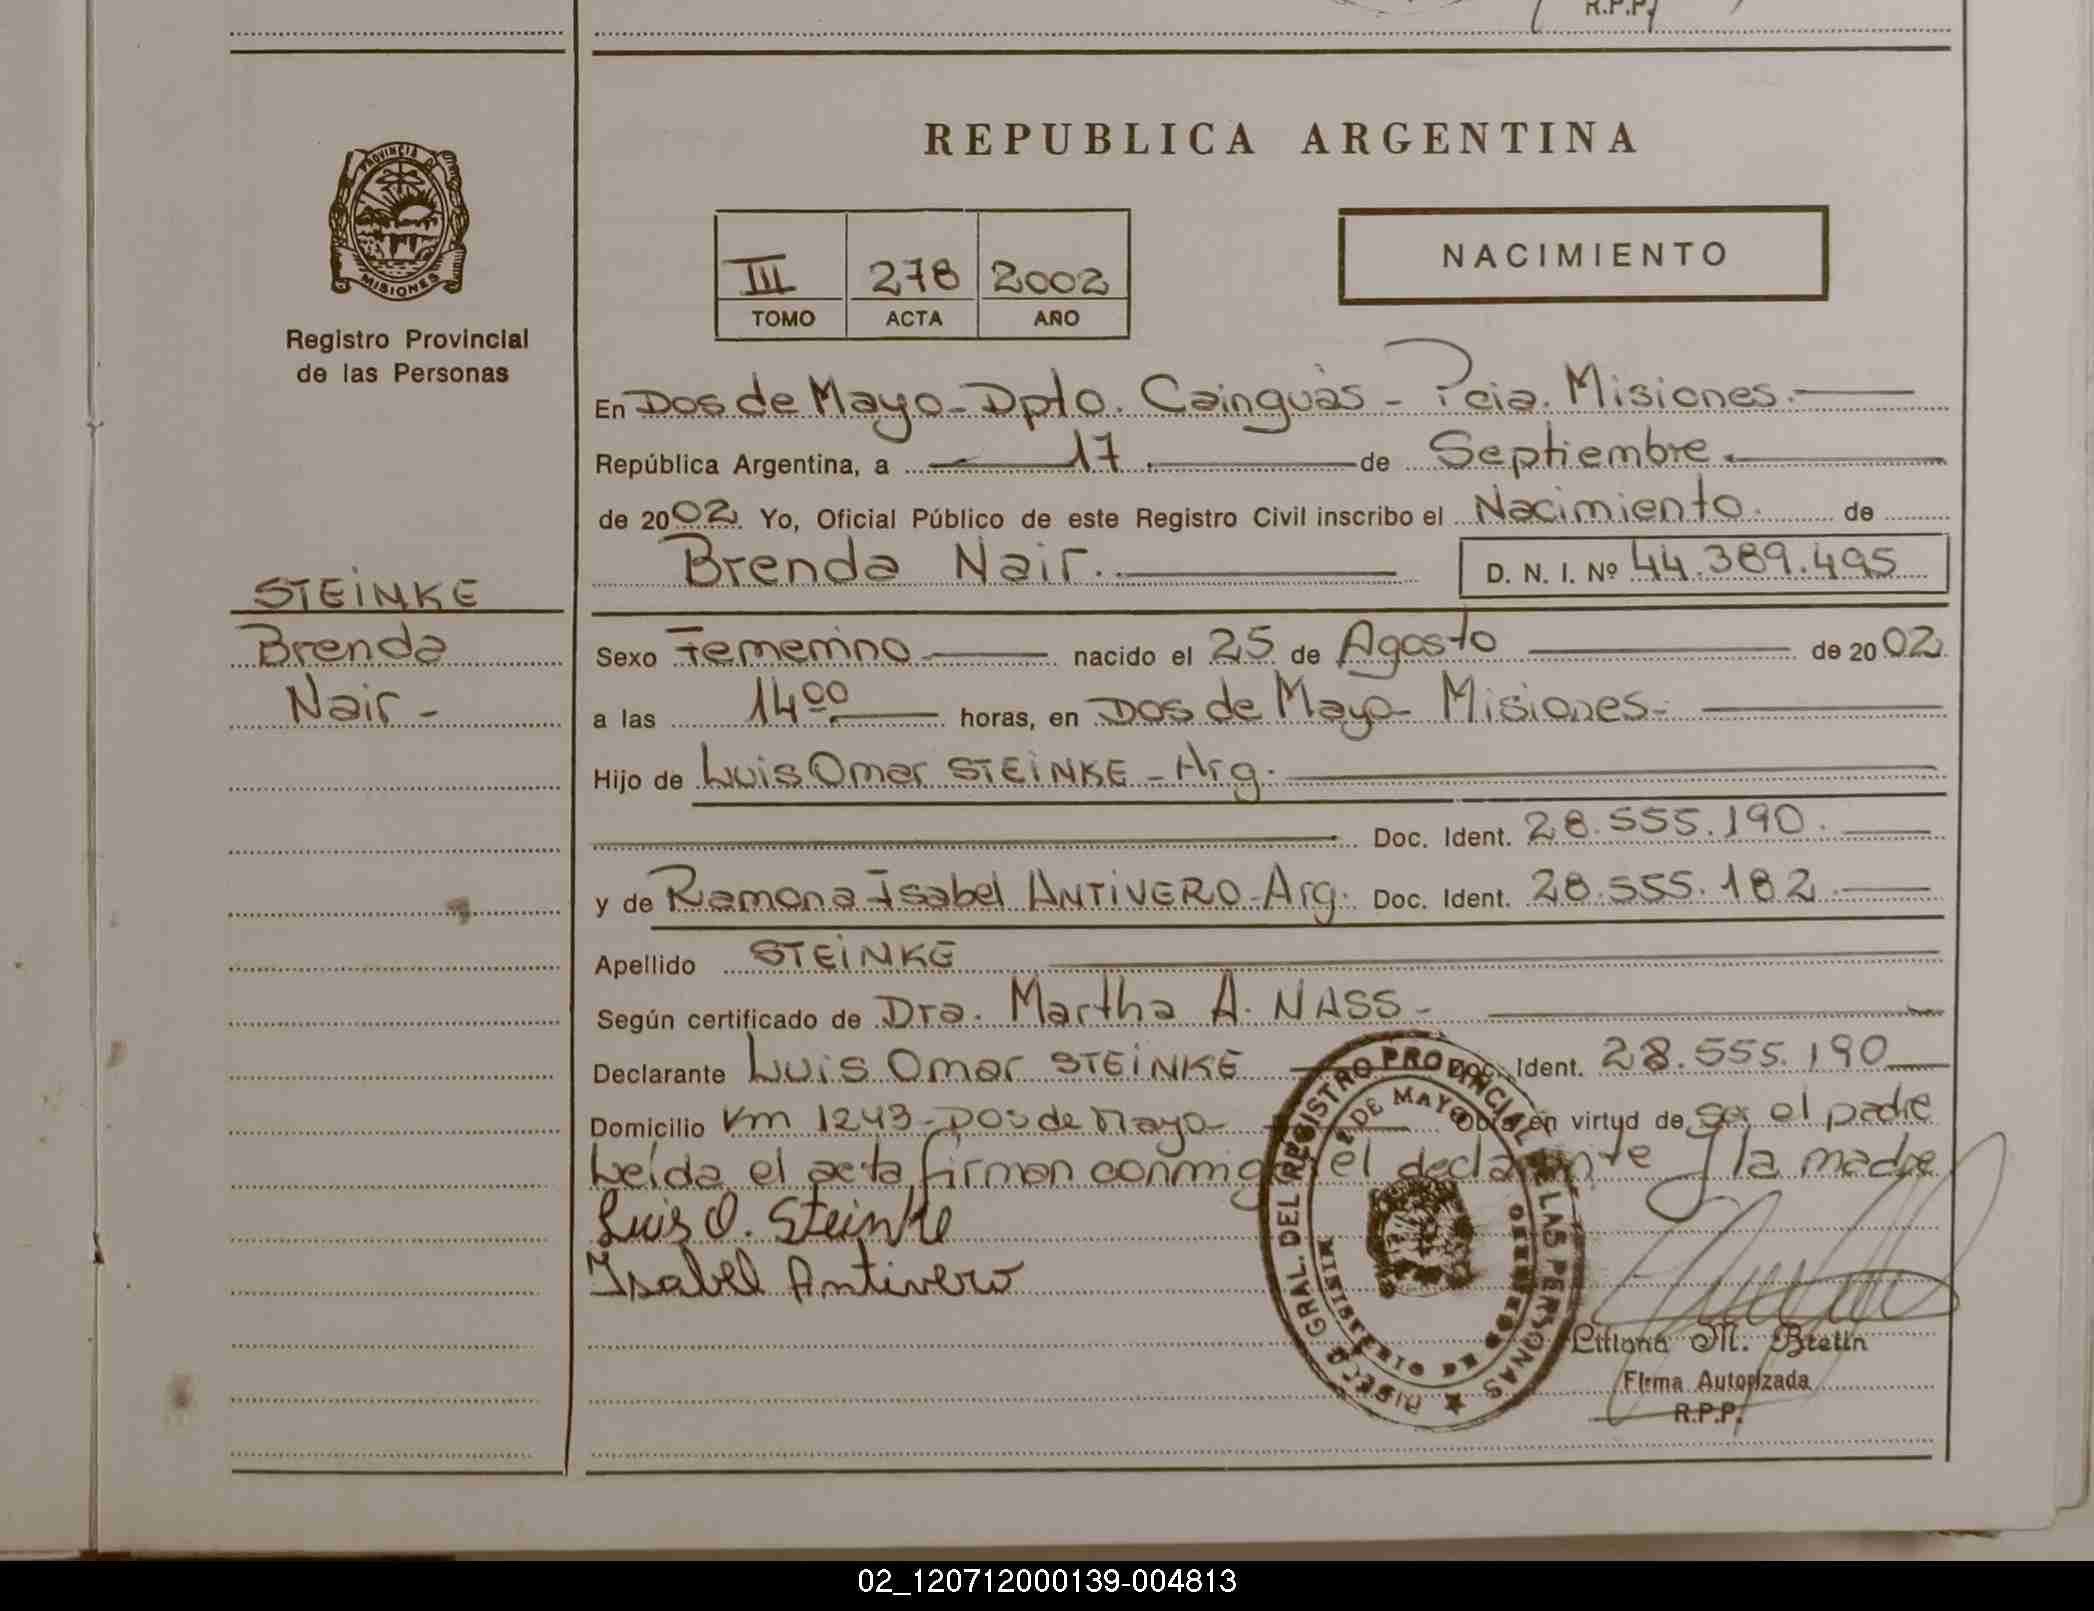 R.P.P.
PROVINCIA DE
MISIONES
Registro Provincial
de las Personas
STEINKE
Brenda
Nair -
REPUBLICA ARGENTINA
III 278 2002
TOMO ACTA AÑO
NACIMIENTO
En Dos de Mayo - Dpto. Cainguàs - Pcia. Misiones.
República Argentina, a 17 de Septiembre
de 2002. Yo, Oficial Público de este Registro Civil inscribo el Nacimiento. de
Brenda Nair. D. N. I. Nº 44.389.495
Sexo Femenino nacido el 25 de Agosto de 2002
a las 14 00 horas, en Dos de Mayo Misiones-
Hijo de Luis Omar STEINKE - Arg.
Doc. Ident. 28.555.190.
y de Ramona Isabel ANTIVERO - Arg. Doc. Ident. 28.555.182.
Apellido STEINKE
Según certificado de Dra. Martha A. NASS -
Declarante Luis Omar STEINKE Doc. Ident. 28.555.190
Domicilio Km 1243 - Dos de Mayo Obra en virtud de ser el padre
Leída el acta firman conmigo el declarante y la madre
Luis O. Steinke
Isabel Antivero
DIREC. GRAL. DEL REGISTRO PROVINCIAL DE LAS PERSONAS
2 DE MAYO
MINISTERIO DE GOBIERNO
Liliana M. Bretin
Firma Autorizada
R.P.P.
02_120712000139-004813